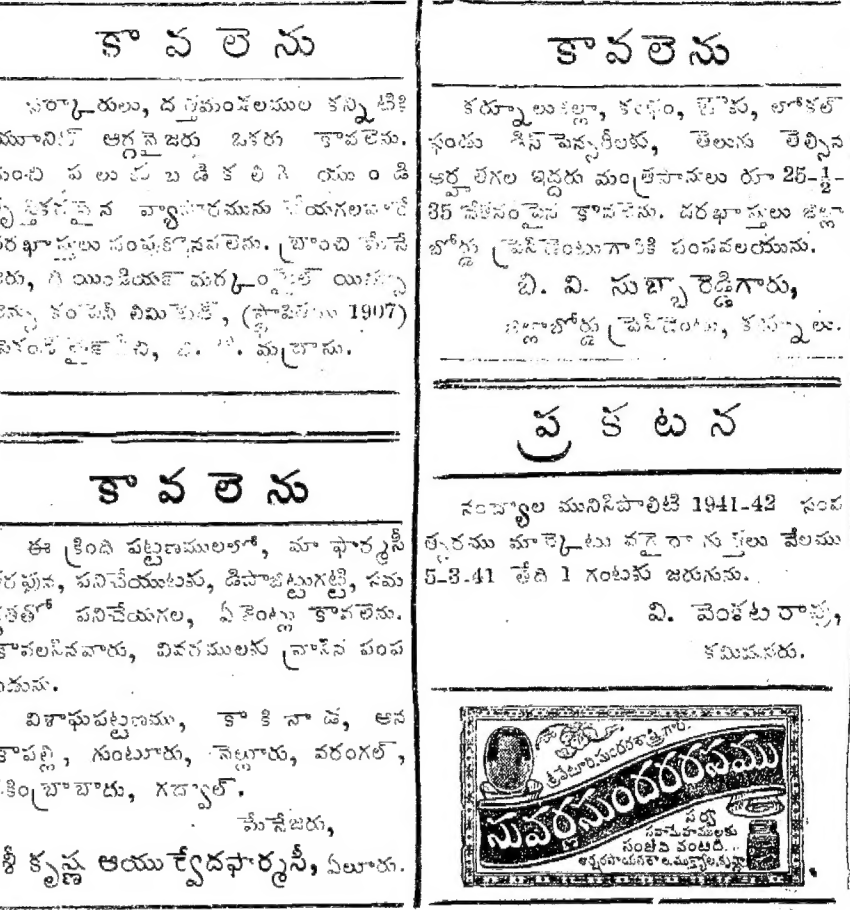 కావలెను
సర్కారులు, దత్తమండలముల కన్నిటికి
ఆర్గనైజరు ఒకరు కావలెను.
పలుకుబడికలిగి యుండి
వ్యాపారమును
సంపుకొనవలెను. బ్రాంచి మేనే
జరు, ది యిండియన్ మర్కంటైల్ యిన్సూ
కంపెనీ లిమిటెడ్, (స్థాపితము 1907)
మద్రాసు.
కావలెను
ఈ క్రింది పట్టణములలో, మా ఫార్మసీ
తరఫున, పనిచేయుటకు, డిపాజిట్టుగట్టి, నమ
పనిచేయగల, ఏజెంట్లు కావలెను.
కావలసినవారు, వివరములకు వ్రాసిన పంప
బడును.
విశాఘపట్టణము, కాకినాడ, అన
కాపల్లి, గుంటూరు, నెల్లూరు, వరంగల్,
సికింద్రాబాదు, గద్వాల్.
మేనేజరు,
శ్రీ కృష్ణ ఆయుర్వేదఫార్మసీ, ఏలూరు.
కావలెను
కర్నూలుజిల్లా, కంభం, లోకల్
ఫండు డిస్పెన్సరీలకు, తెలుగు తెల్సిన
అర్హతగల ఇద్దరు మంత్రసానులు రూ 25-½-
35 జీతంపైన కావలెను. దరఖాస్తులు జిల్లా
బోర్డు ప్రెసిడెంటుగారికి పంపవలయును.
బి. వి. సుబ్బారెడ్డిగారు,
జిల్లాబోర్డు ప్రెసిడెంటు, కర్నూలు.
ప్రకటన
నంద్యాల మునిసిపాలిటి 1941-42 సంవ
త్సరము మార్కెటు వగైరా గుత్తలు వేలము
5-3-41 తేది 1 గంటకు జరుగును.
వి. వెంకటరావు,
కమిషనరు.
సువర్ణసుందరరసము
సర్వ
సంజీవి వంటిది..